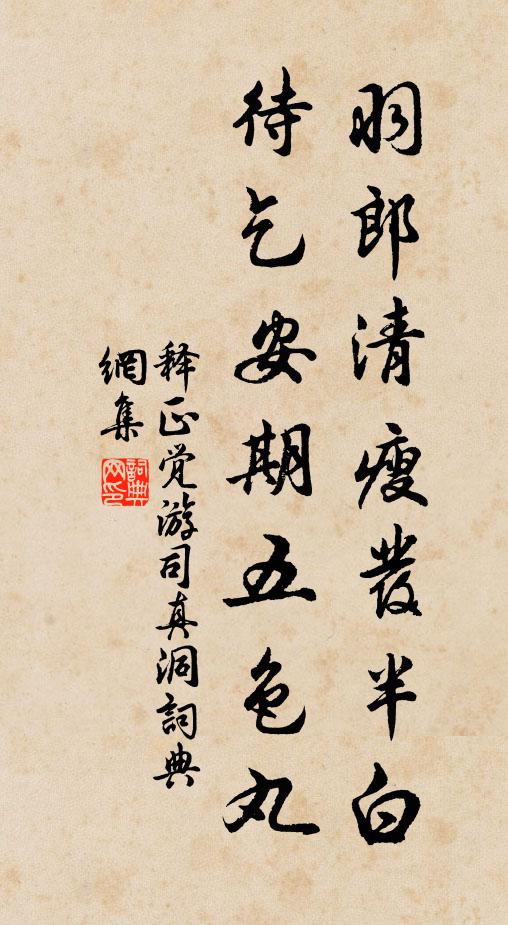 羽郎清瘦發半白
待乞安期五色丸
释正觉游司真洞詞典
網集
詞典
网印